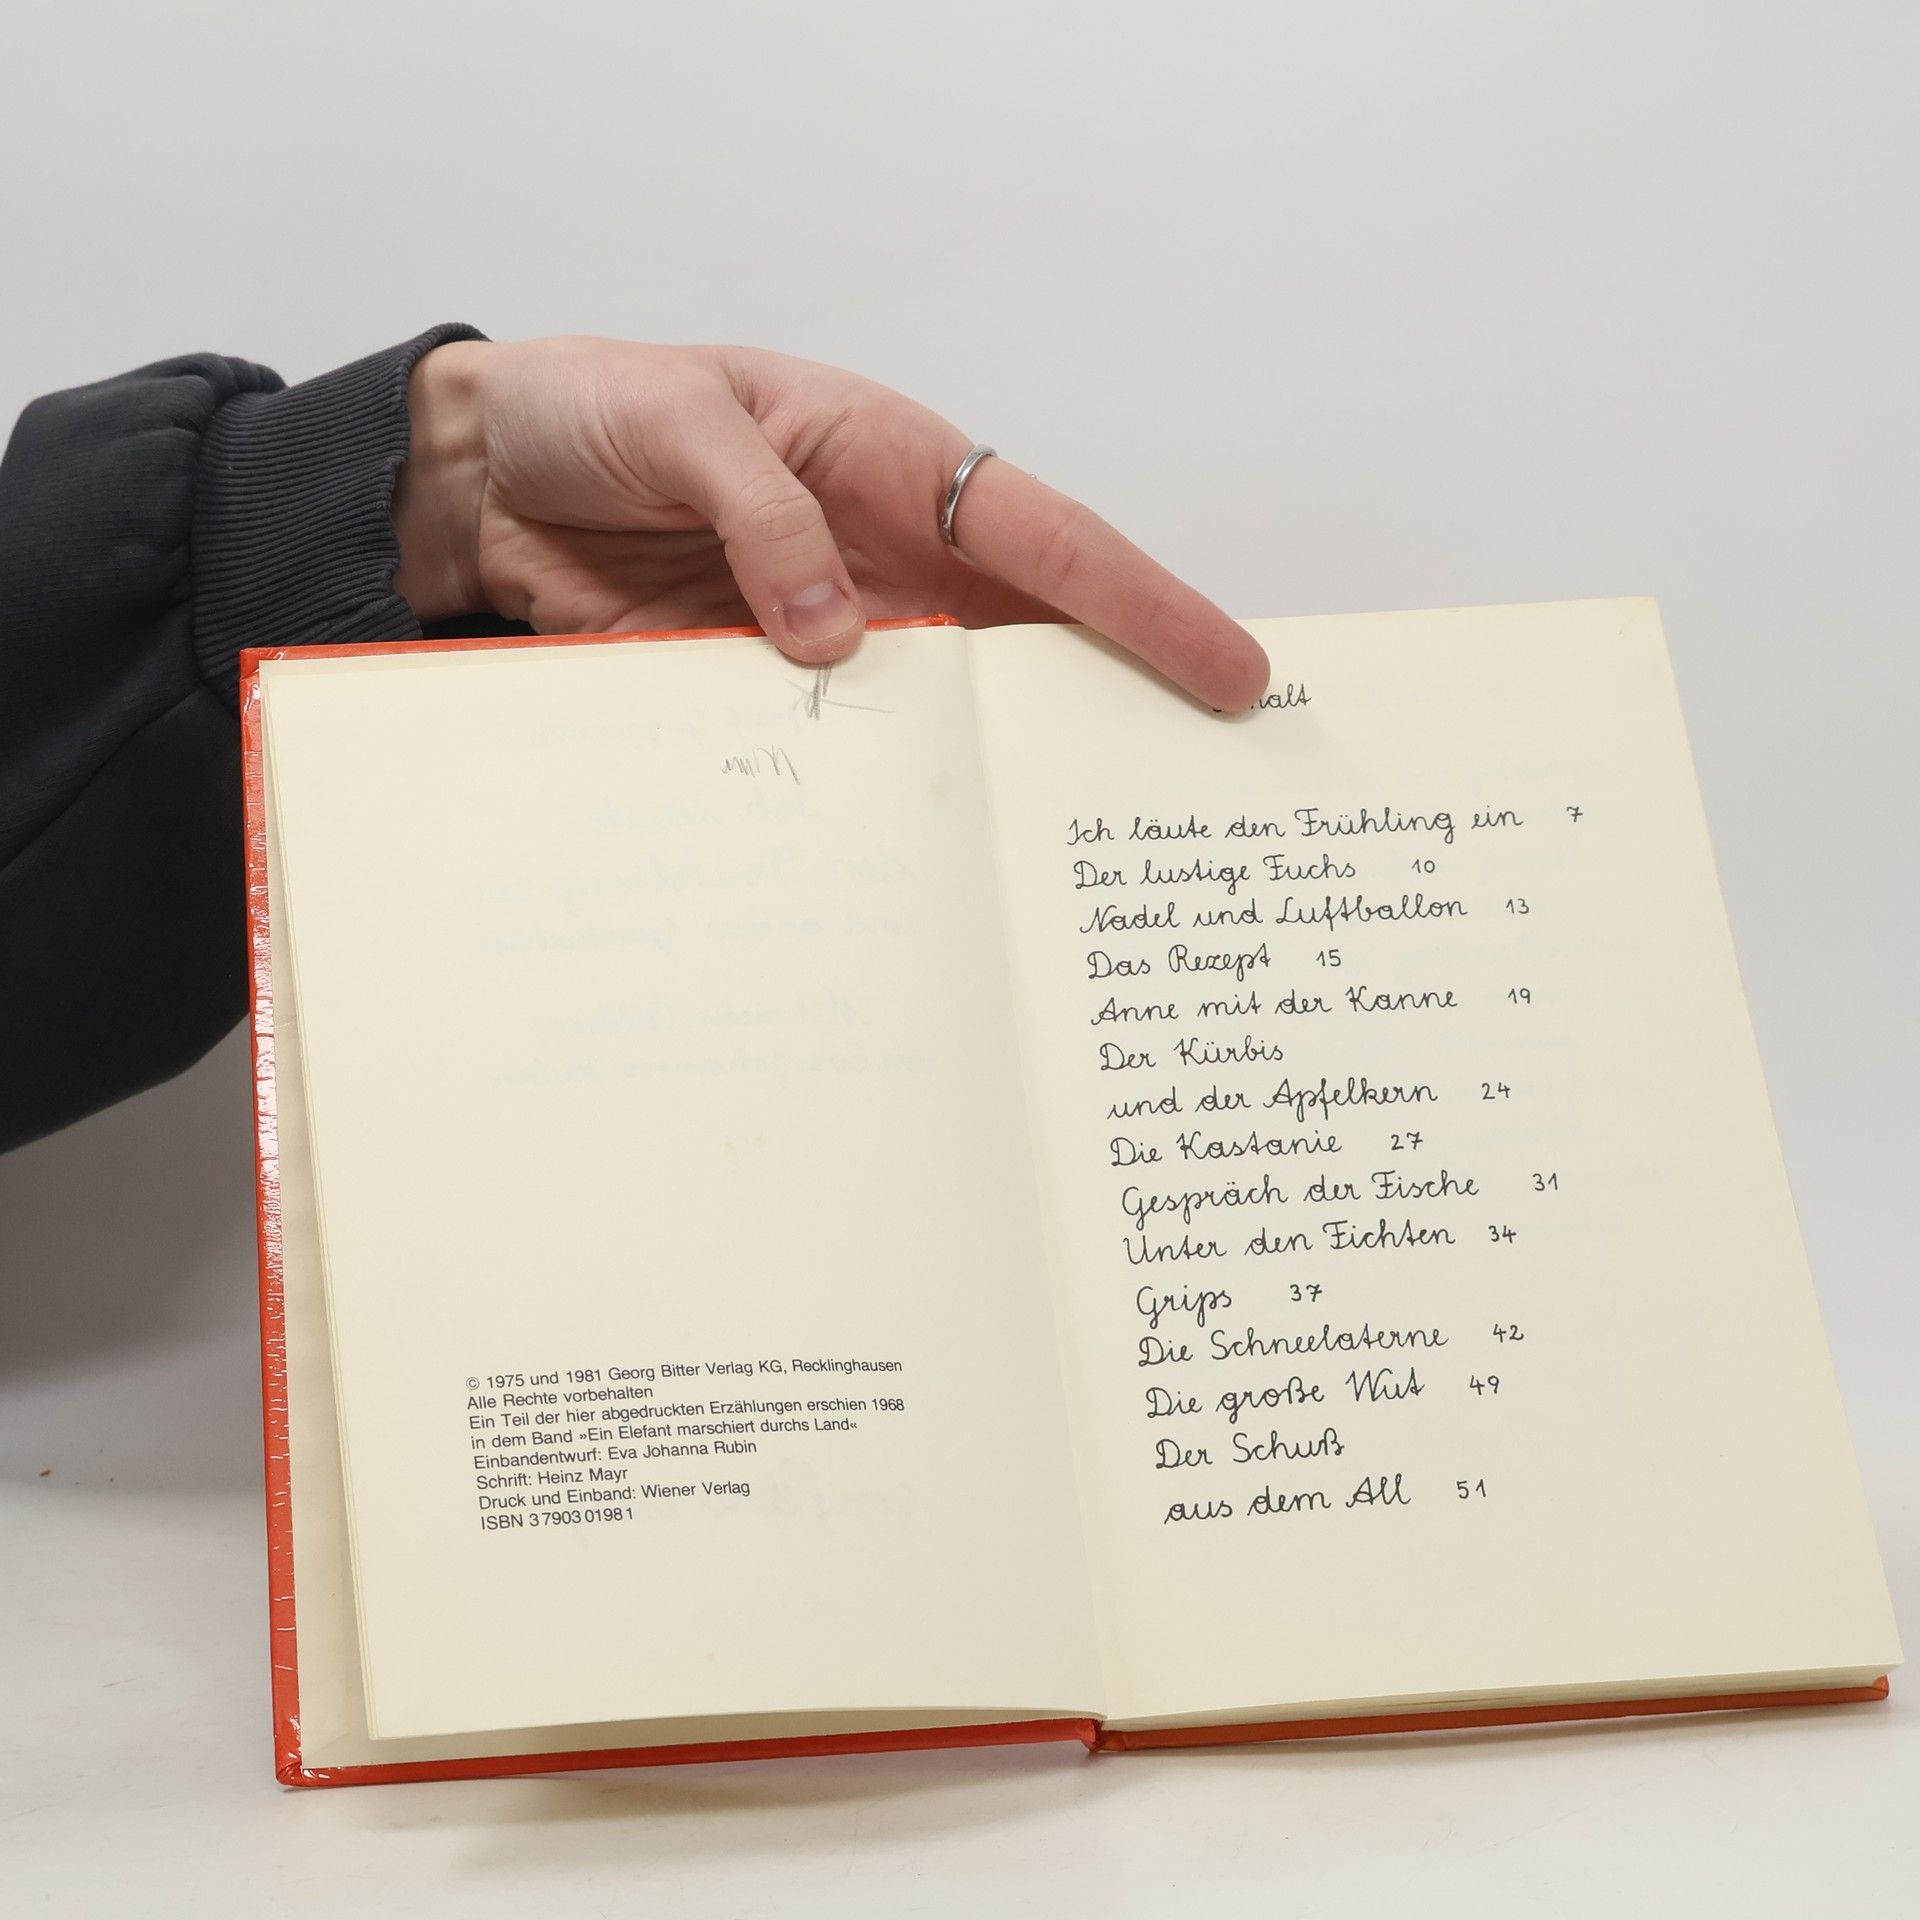 © 1975 und 1981 Georg Bitter Verlag KG, Recklinghausen
Alle Rechte vorbehalten
Ein Teil der hier abgedruckten Erzählungen erschien 1968
in dem Band »Ein Elefant marschiert durchs Land«
Einbandentwurf: Eva Johanna Rubin
Schrift: Heinz Mayr
Druck und Einband: Wiener Verlag
ISBN 3 7903 0198 1
Ich läute den Frühling ein 7
Der lustige Fuchs 10
Nadel und Luftballon 13
Das Rezept 15
Anne mit der Kanne 19
Der Kürbis
und der Apfelkern 24
Die Kastanie 27
Gespräch der Fische 31
Unter den Fichten 34
Grips 37
Die Schneelaterne 42
Die große Wut 49
Der Schuß
aus dem All 51